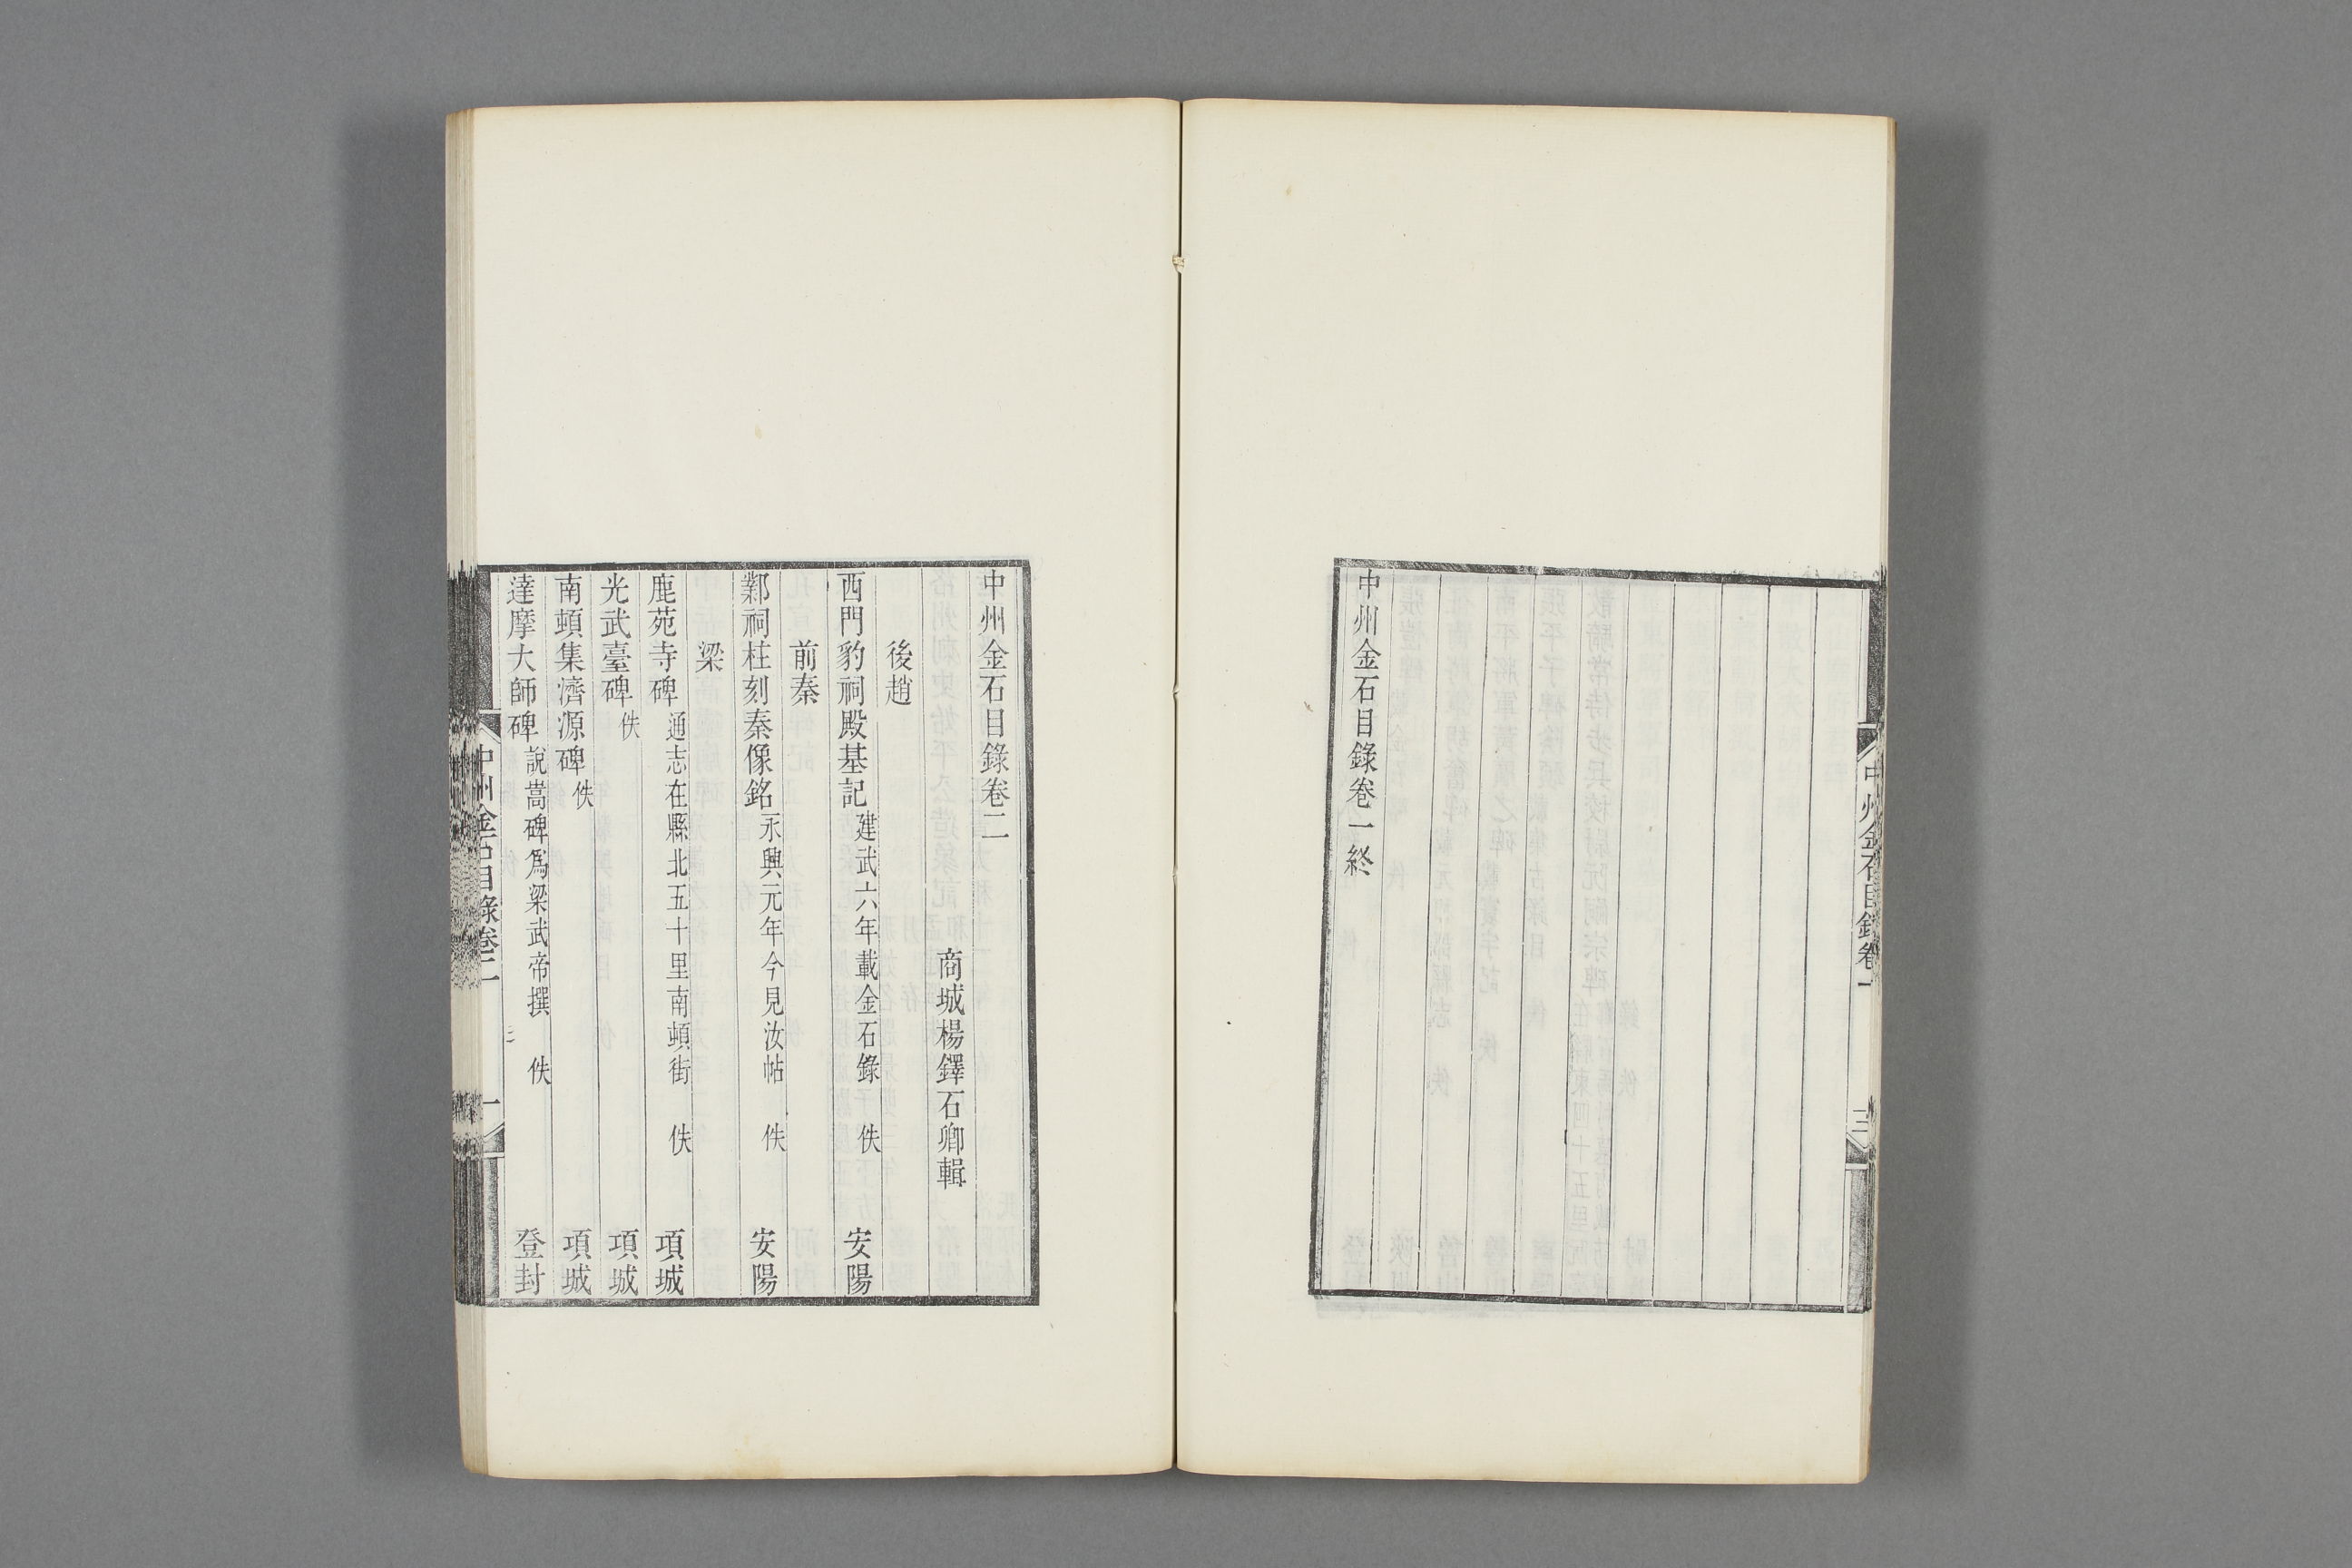 中州金石目錄卷一
中州金石目錄卷一終
中州金石目錄卷二
商城楊鐸石卿輯
後趙
西門豹祠殿基記 建武六年載金石錄 佚 安陽
前秦
鄴祠柱刻秦像銘 永興元年今見汝帖 佚 安陽
梁
鹿苑寺碑 通志在縣北五十里南頓街 佚 項城
光武臺碑 佚 項城
南頓集濟源碑 佚 項城
達摩大師碑 說嵩碑爲梁武帝撰 佚 登封
中州金石目錄卷二 一